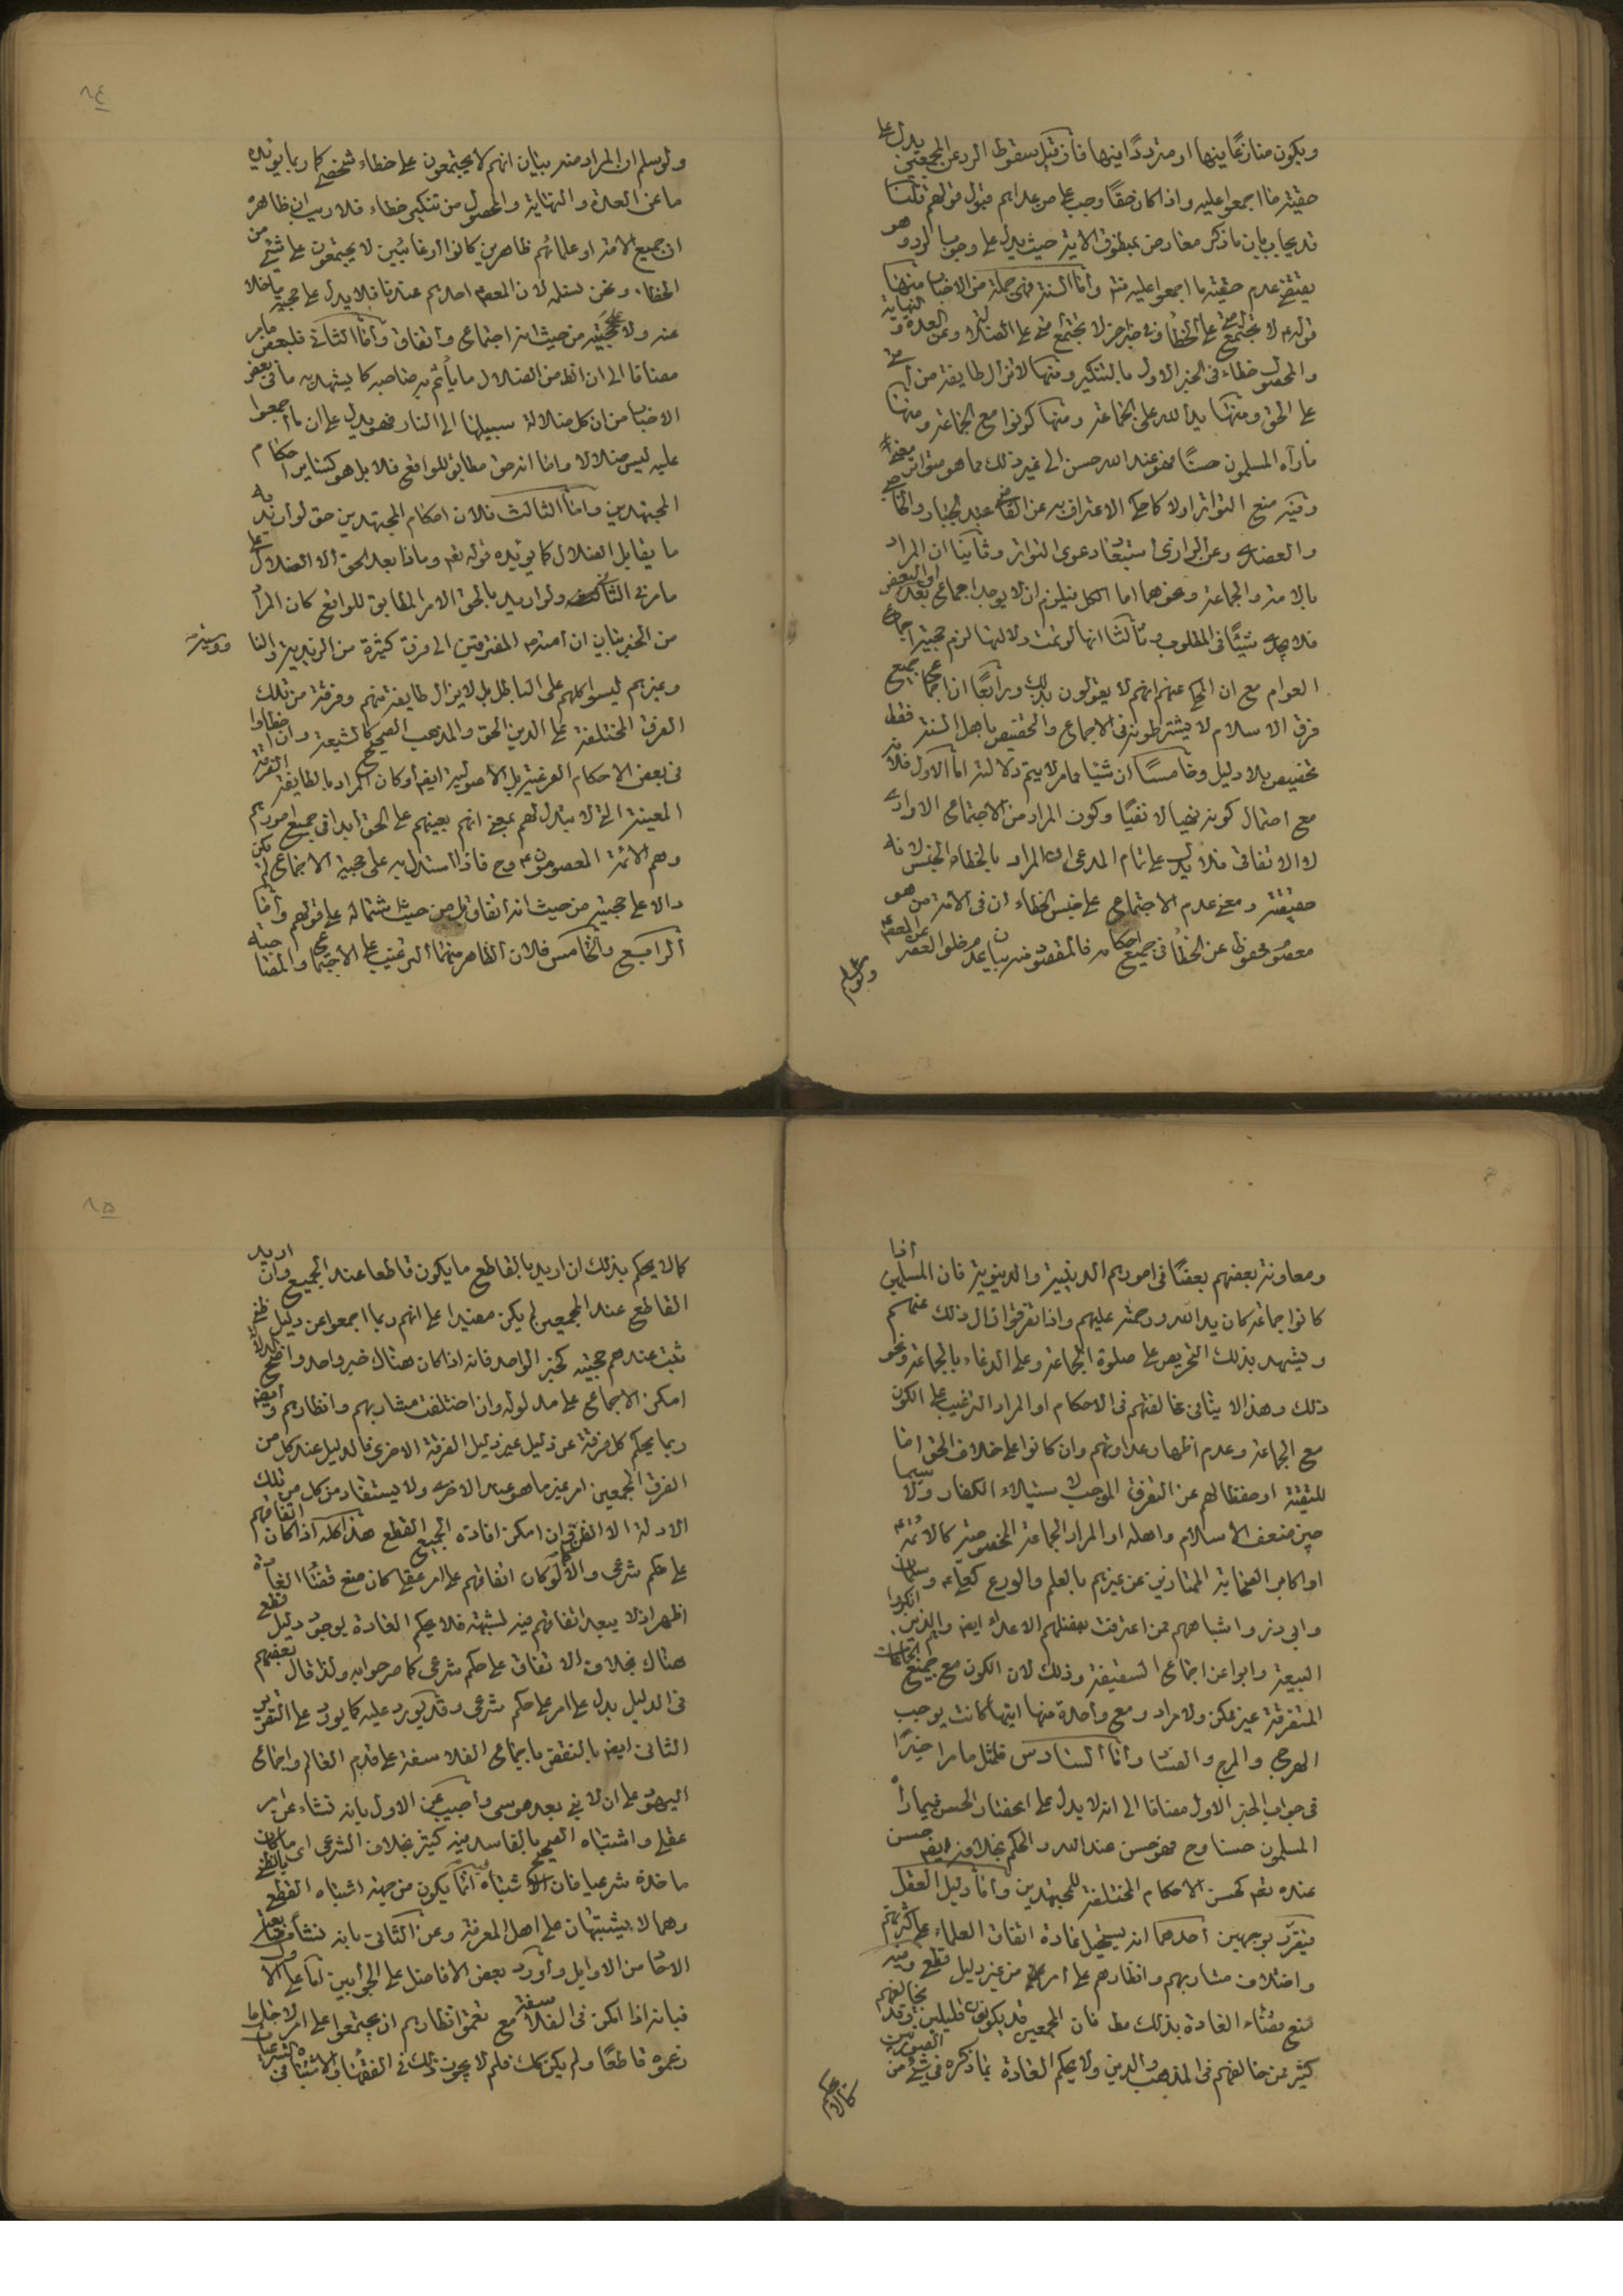 ويكون منازعا فيها او مترددا فيها فان قيل سقوط الرد عن المجمعين يدل على
حقية ما اجمعوا عليه واذا كان حقا وجب على من عداهم قبول قولهم قلنا
قد يجاب بان ما ذكر معارض بمنطوق الاية حيث يدل على وجوب الرد وهو
يقتضي عدم حقية ما اجمعوا عليه منه واما السنة فهي جملة من الاخبار منها
قوله لا تجتمع امتي على الخطأ وفي خبر اخر لا تجتمع امتي على الضلالة وعن العدة و النهاية
والمحصول خطاء في الخبر الاول بالتنكير ومنها لا تزال طايفة من امتي
على الحق ومنها يد الله على الجماعة ومنها كونوا مع الجماعة ومنها
ما رآه المسلمون حسنا فهو عند الله حسن الى غير ذلك مما هو متواتر معنى
وفيه منع التواتر اولا كما حكي الاعتراف به عن القاضي عبد الجبار والحاجبي
والعضدي وعن الرازي استبعاد دعوى التواتر وثانيا ان المراد
بالامة والجماعة ونحوهما اما الكل فيلزم ان لا يوجد اجماع بعد او البعض
فلا يجدي شيئا في المطلوب وثالثا انها لو تمت دلالتها لزم حجية اجماع
العوام مع ان المحكي عنهم انهم لا يقولون بذلك ورابعا ان اجماع جميع
فرق الاسلام لا يشترطونه في الاجماع والتخصيص باهل السنة فقط
تخصيص بلا دليل وخامسا ان شيئا مما مر لا يتم دلالته اما الاول فلانه
مع احتمال كونه نهيا لا نفيا وكون المراد من الاجتماع الارادي
لا الاتفاقي فلا يدل على تمام المدعى ان المراد بالخطاء الجنس لانه
حقيقته ومعنى عدم الاجتماع على جنس الخطاء ان في الامة من هو
معصوم محفوظ عن الخطأ في جميع احكامه فالمقصود منه بيان عدم خلو العصر عن المعصوم
ولو سلم
ولو سلم ان المراد منه بيان انهم لا يجتمعون على خطاء شخصي كما ربما يؤيده
ما عن العدة والنهاية والمحصول من تنكير خطاء فلا ريب ان ظاهره
ان جميع الامة او علمائهم ظاهرين كانوا او غائبين لا يجتمعون على شيء من
الخطاء ونحن نسلمه لان المعصوم احدهم عندنا فلا يدل على حجية ما خلا
عنه ولا على حجيته من حيث انه اجتماع واتفاق واما الثاني فلبعض ما مر
مضافا الى ان الظاهر من الضلال ما يأثم به صاحبه كما يشهد به ما في بعض
الاخبار من ان كل ضلالة سبيلها الى النار فهو يدل على ان ما اجمعوا
عليه ليس ضلالا واما انه حق مطابق للواقع فلا بل هو كساير احكام
المجتهدين واما الثالث فلان احكام المجتهدين حق لو اريد به
ما يقابل الضلال كما يؤيده قوله تعالى وماذا بعد الحق الا الضلال على
ما مر في الثاني ولو اريد بالحق الامر المطابق للواقع كان المراد
من الخبر بيان ان امته المفترقين الى فرق كثيرة من الزيدية والنا
ووسية
وغيرهم ليسوا كلهم على الباطل بل لا يزال طايفة منهم وفرقة من تلك
الفرق المختلفة على الدين الحق والمذهب الصحيح كالشيعة وان اخطاوا
في بعض الاحكام الفرعية بل الاصولية ايضا وكان المراد بالطايفة الفرقة
المعينة التي لا يتبدل لهم بمعنى انهم بعينهم على الحق ابدا في جميع امورهم
وهم الائمة المعصومون وح فاذا استدل به على حجية الاجماع لم يكن
دالا على حجيته من حيث انه اتفاق بل من حيث اشتماله على قولهم واما
الرابع والخامس فلان الظاهر منهما الترغيب على الاجتماع والمصاحبة
ومعاونة بعضهم بعضا في امورهم الدينية والدنيوية فان المسلمين اذا
كانوا جماعة كان يد الله ورحمته عليهم واذا تفرقوا زال ذلك عنهم
ويشهد بذلك التحريص على صلوة الجماعة وعلى الدعاء بالجماعة ونحو
ذلك وهذا لا ينافي مخالفتهم في الاحكام او المراد الترغيب على الكون
مع الجماعة وعدم اظهار عداوتهم وان كانوا على خلاف الحق اما
للتقية او حفظا لهم عن التفرق الموجب لاستيلاء الكفار ولا سيما
حين ضعف الاسلام واهله او المراد الجماعة المخصوصة كالائمة
او اكابر الصحابة الممتازين عن غيرهم بالعلم والورع كعلي وسلمان
وابي ذر واشباههم ممن اعترفت بفضلهم الاعداء ايضا والذين انكروا
البيعة وابوا عن اجماع السقيفة وذلك لان الكون مع جميع الجماعات
المتفرقة غير ممكن ولا مراد ومع واحدة منها ايتها كانت يوجب
الهرج والمرج والفساد واما السادس فلمثل ما مر اخيرا
في جواب الخبر الاول مضافا الى انه لا يدل على انحصار الحسن فيما رأه
المسلمون حسنا وح فهو حسن عند الله والحكم بخلافه ايضا حسن
عنده تعالى كحسن الاحكام المختلفة للمجتهدين واما دليل العقل
فيقرر بوجهين احدهما انه يستحيل عادة اتفاق العلماء على كثرتهم
واختلاف مشاربهم وانظارهم على امر من غير دليل قطعي وفيه
منع قضاء العادة بذلك مطلقا فان المجمعين قد يكونون قليلين وقد يخالفهم
كثير ممن خالفهم في المذهب والدين ولا يحكم العادة بما ذكره في شيء من الصورتين
كما لا يحكم
كما لا يحكم بذلك ان اريد بالقاطع ما يكون قاطعا عند الجميع وان اريد
القاطع عند المجمعين لم يكن مفيدا على انهم ربما اجمعوا عن دليل ظني
ثبت عندهم حجيته كخبر الواحد فانه اذا كان هناك خبر واحد واضح الدلالة
امكن الاجماع على مدلوله وان اختلفت مشاربهم وانظارهم وايضا
ربما يحكم كل فرقة عن دليل غير دليل الفرقة الاخرى فالدليل عند كل من
الفرق المجمعين امر غير ما هو عند الاخرى ولا يستفاد من كل من تلك
الادلة الا الظن وان امكن افادة الجميع القطع هذا كله اذا كان اتفاقهم
على حكم شرعي والا لو كان اتفاقهم على امر عقلي كان منع قضاء العادة
اظهر اذ لا يبعد اتفاقهم فيه لشبهة فلا يحكم العادة بوجود دليل قطعي
هناك بخلاف الاتفاق على حكم شرعي كما صرحوا به ولذا قال بعضهم
في الدليل يدل على امر على حكم شرعي وقد يورد عليه كما يورد على التقرير
الثاني ايضا بالنقض باجماع الفلاسفة على قدم العالم واجماع
اليهود على ان لا نبي بعد موسى واجيب عن الاول بانه نشاء عن امر
عقلي واشتباه الصحيح بالفاسد فيه كثير بخلاف الشرعي اي ما كان
ماخذه شرعيا فان الاشتباه فيه انما يكون من جهة اشتباه القطعي بالظني
وهما لا يشتبهان على اهل المعرفة وعن الثاني بانه نشأ من اتباع
الاحاد من الاوايل واورد بعض الافاضل على الجوابين اما على الاول
فبانه اذا امكن في الفلاسفة مع تعمق انظارهم ان يجتمعوا على امر لا
زعموه قاطعا ولم يكن كذلك فلم لا يجوز ذلك في الفقهاء والاشتباه في